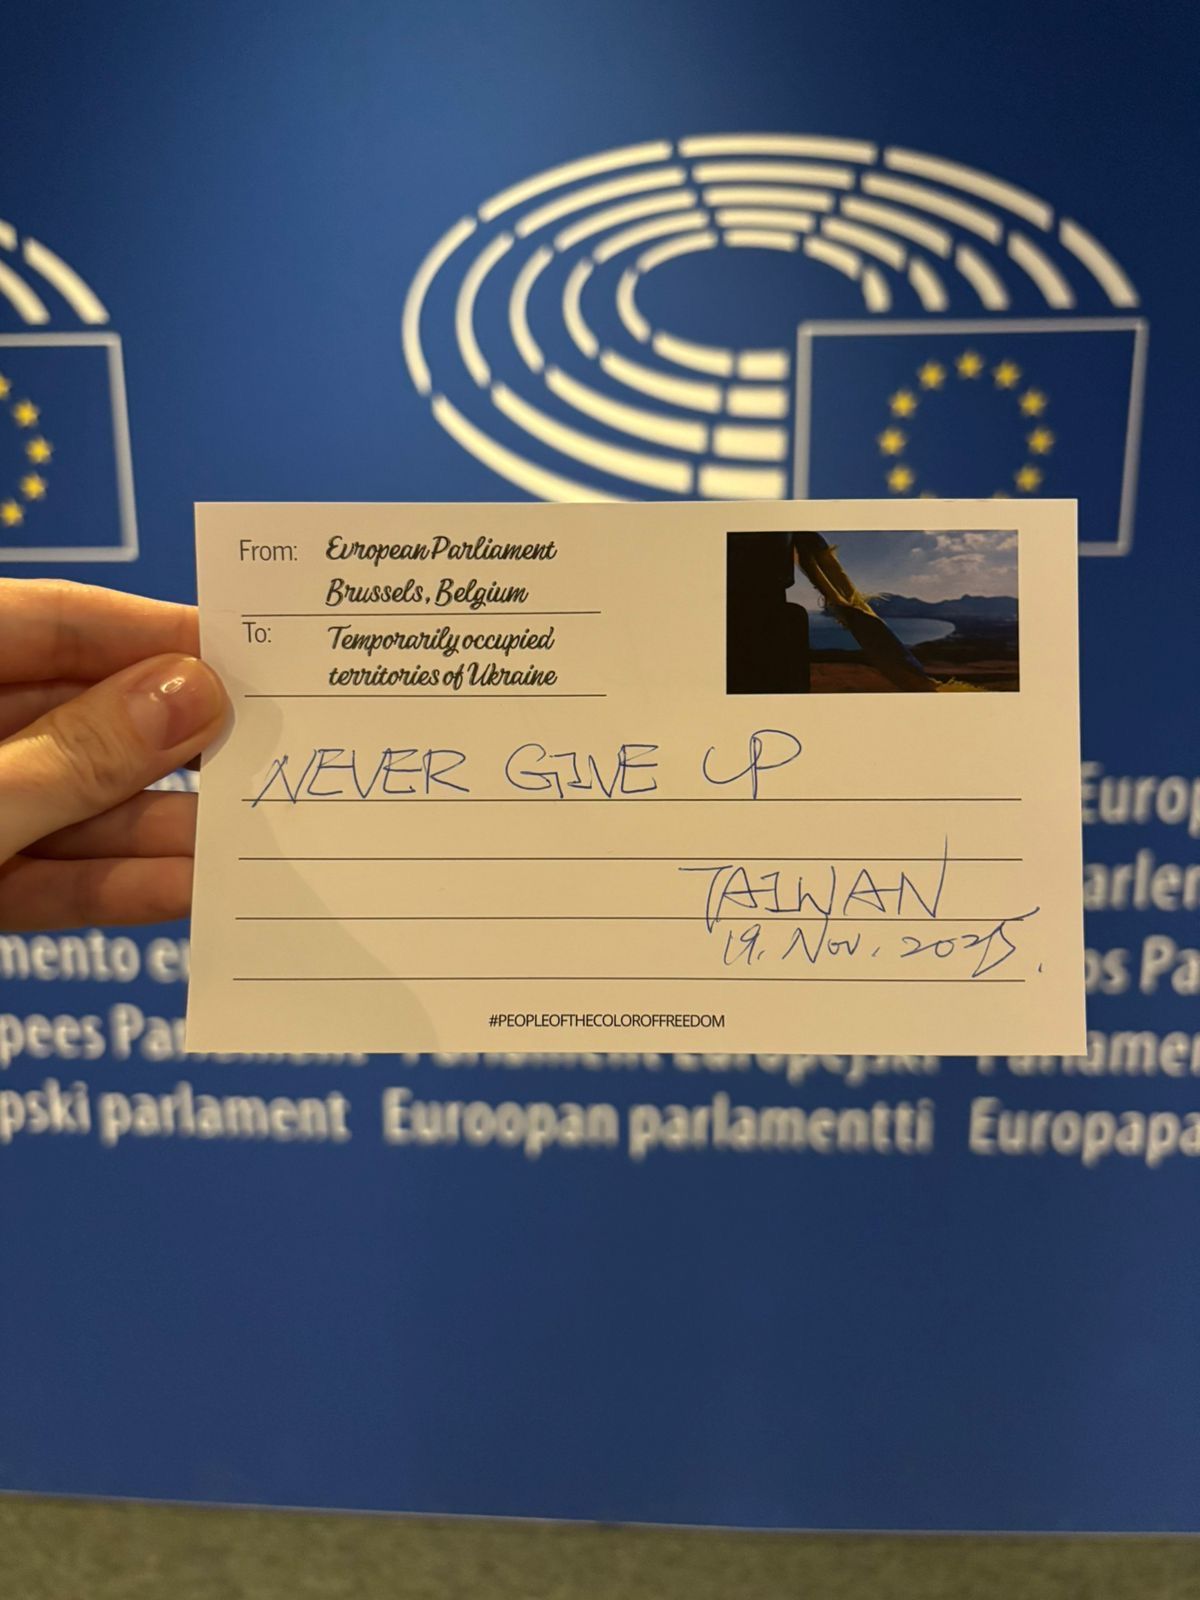 From: European Parliament
Brussels, Belgium
To: Temporarily occupied
territories of Ukraine
NEVER GIVE UP
TAIWAN
19. Nov. 2025.
#PEOPLEOFTHECOLOROFFREEDOM
Europ
arlem
mento eu
os Pa
pees Par
Parlament Europejski Parlamen
pski parlament Euroopan parlamentti Europapa